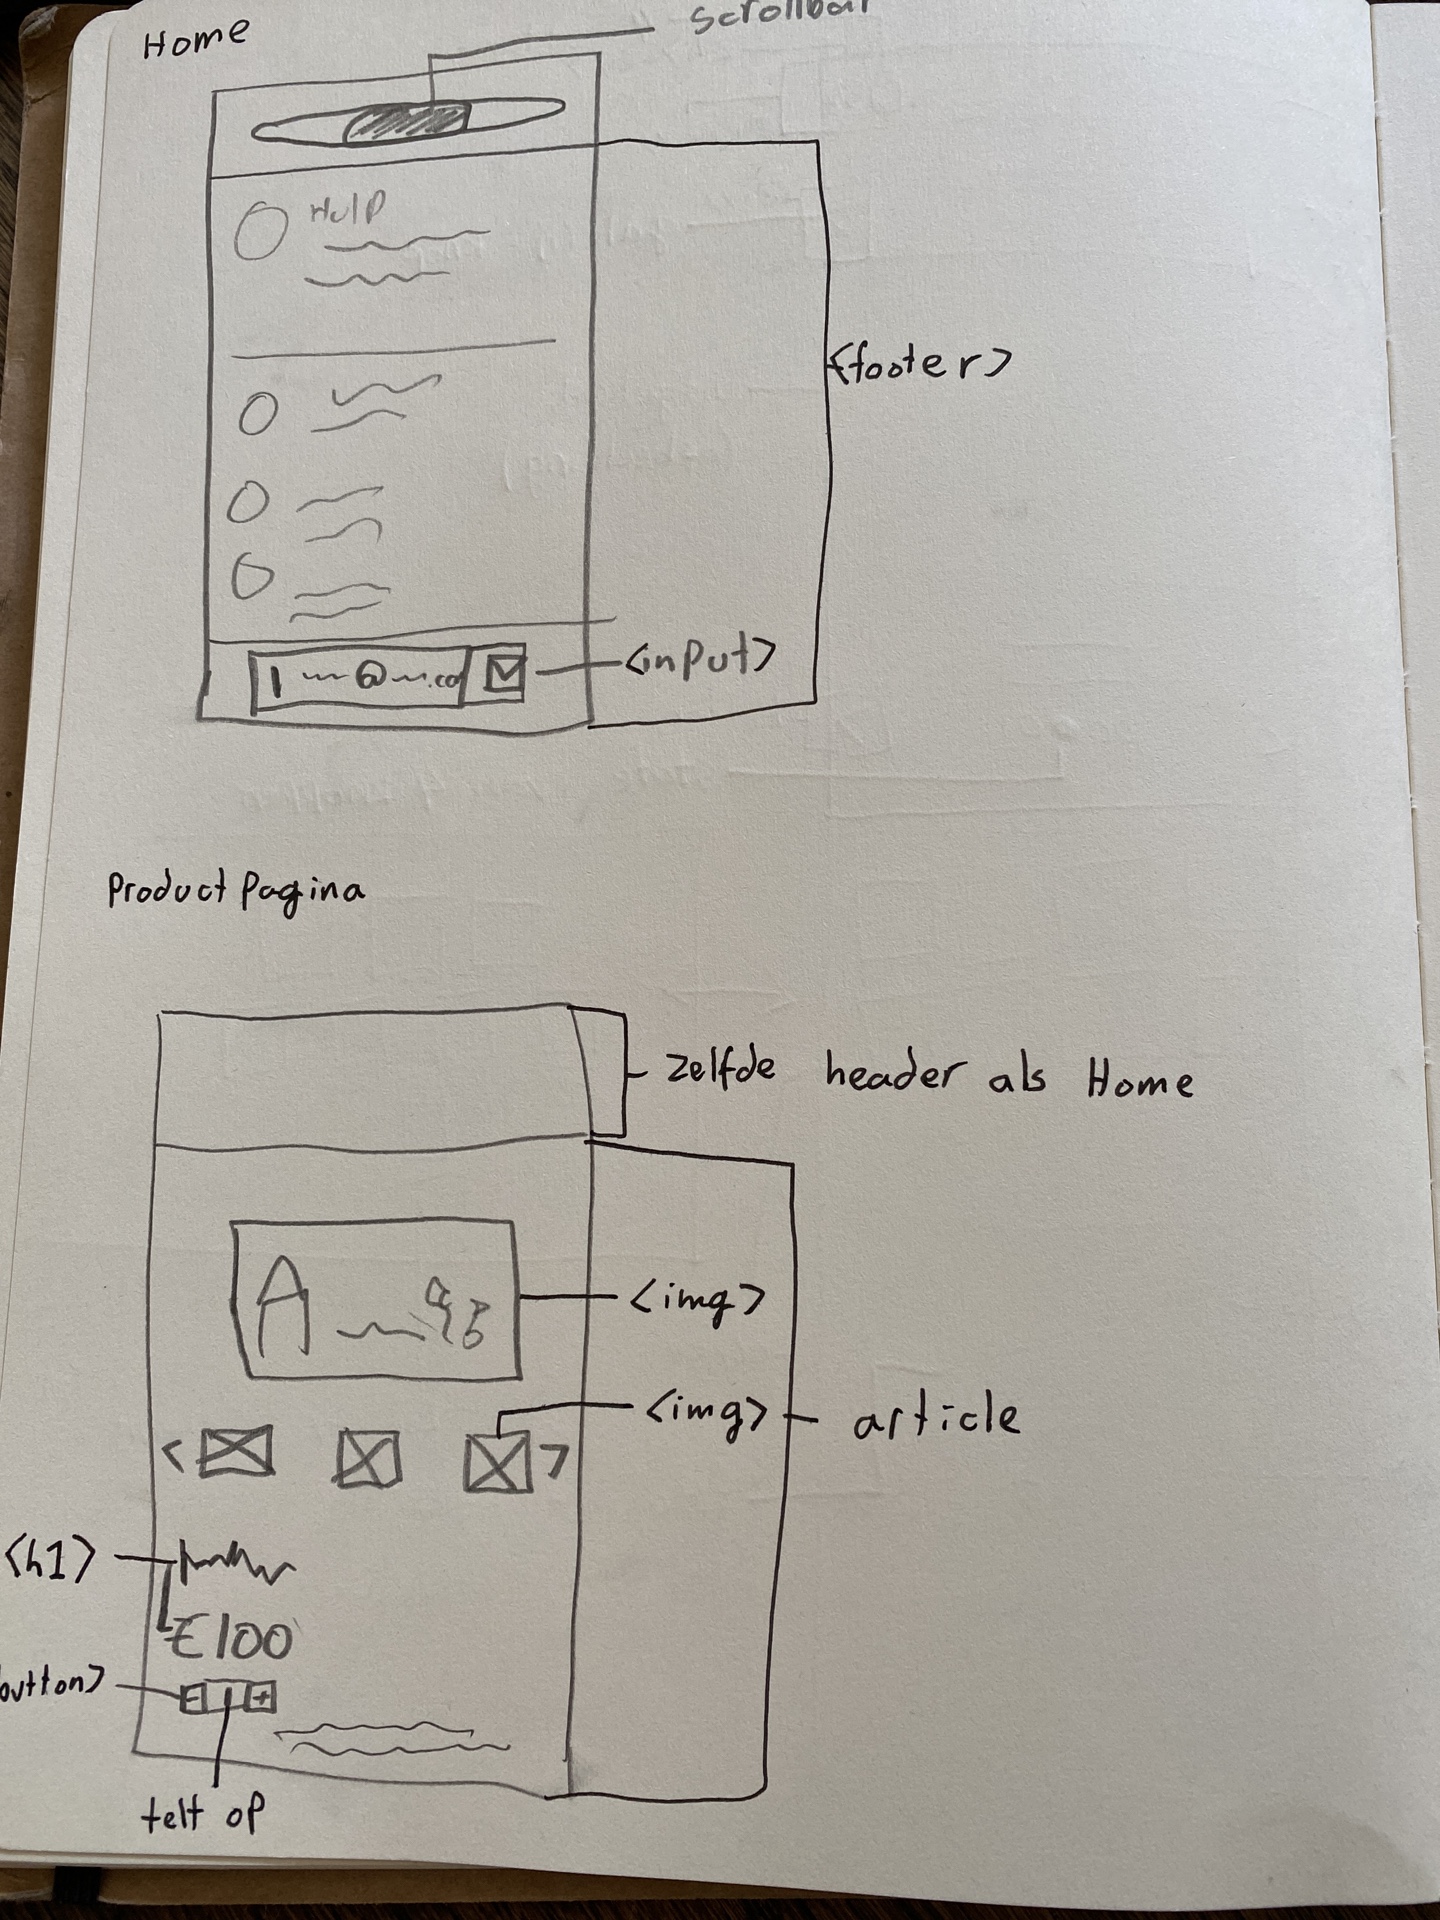 Home
scrollbar
Help
<footer>
@ .co
<input>
Product Pagina
zelfde header als Home
<img>
A
<img>
article
< >
<h1>
€100
button>
- 1 +
telt op